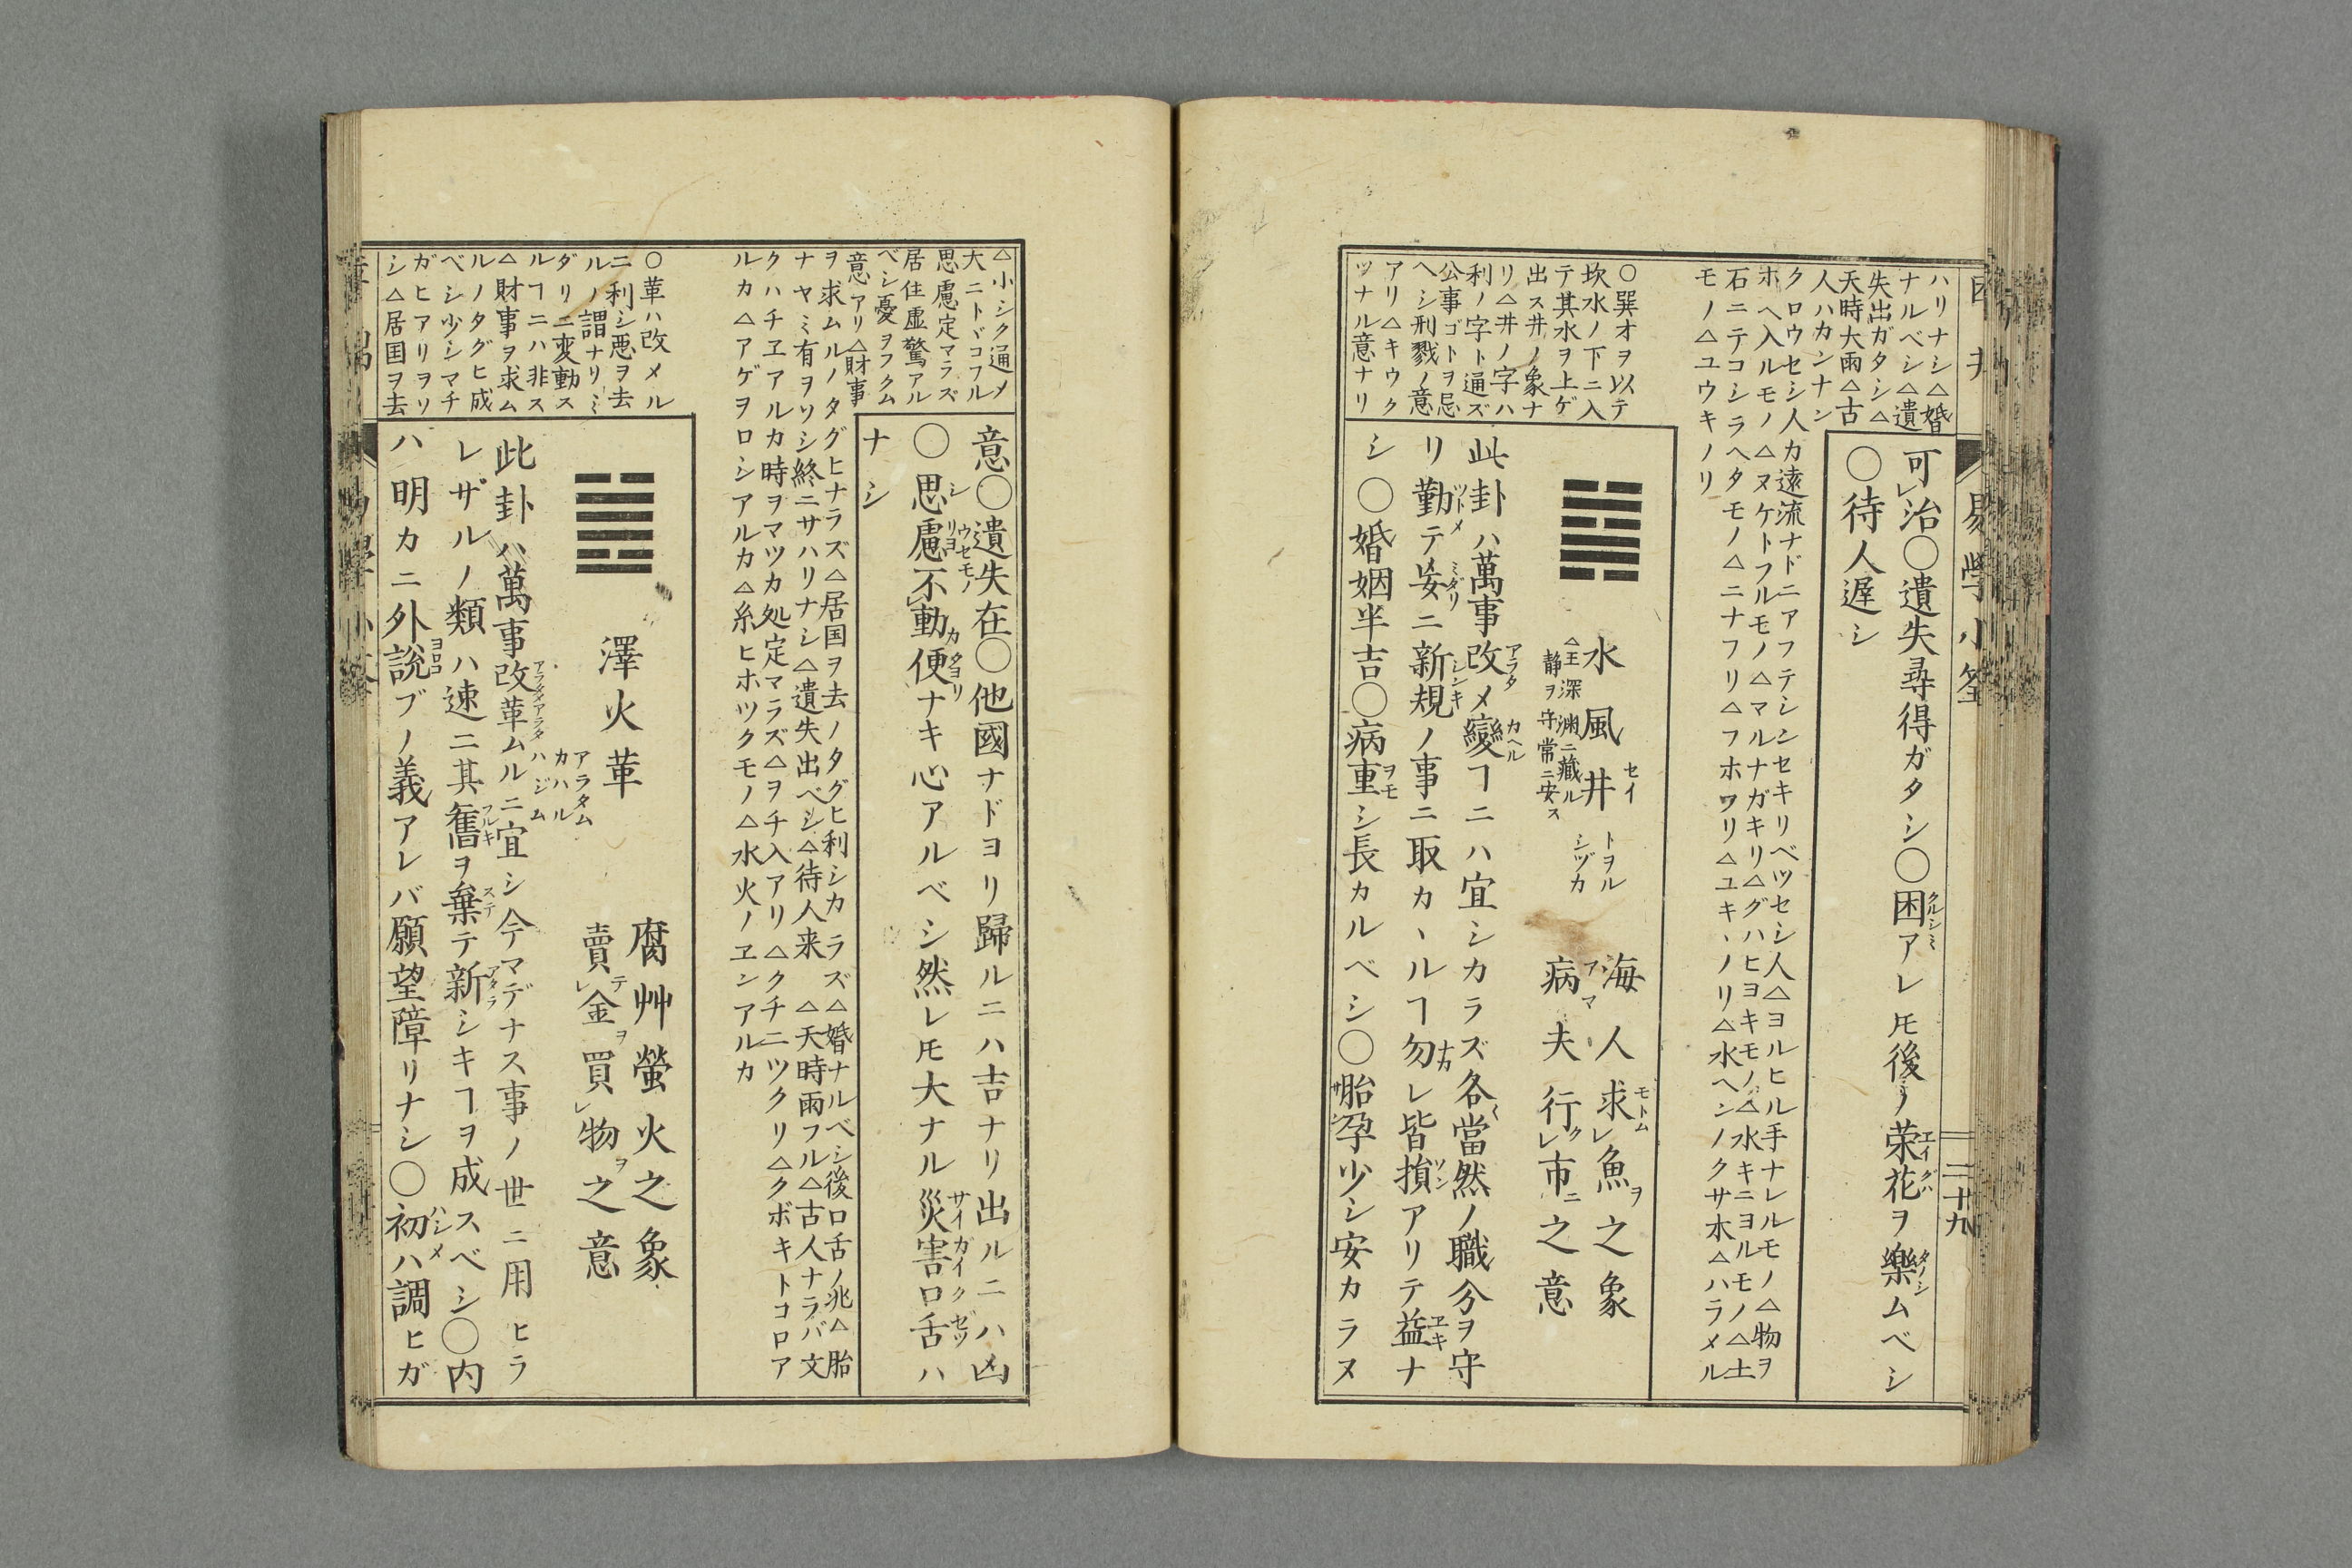 易學小筌
二十九
ハリナシ△婚
ナルベシ△遺
失出ガタシ△
天時大雨△古
人ハカンナン
クロウセシ人カ遠流ナドニアフテシンセキリベツセシ人△ヨルヒル手ナレルモノ△物ヲ
ホヘ入ルモノ△ヌケトフルモノ△マルナガキリ△グハヒヨキモノ△水キニヨルモノ△土
石ニテコシラヘタモノ△ニナフリ△フホワリ△ユキヽノリ△水ヘンノクサ木△ハラメル
モノ△ユウキノリ
可治〇遺失尋得ガタシ〇困アレ𪜈後ノ栄花ヲ樂ムベシ
〇待人遅シ
〇巽オヲ以テ
坎水ノ下ニ入
テ其水ヲ上ゲ
出ス井ノ象ナ
リ△井ノ字ハ
利ノ字ト通ズ
公事ゴトヲ忌
ヘシ刑戮ノ意
アリ△キウク
ツナル意ナリ
水風井
セイ
トヲル
シヅカ
△王深渊ニ藏ル
静ヲ守常ニ安ス
海人求魚之象
病夫行市之意
此卦ハ萬事改メ變ヿニハ宜シカラズ各當然ノ職分ヲ守
リ勤テ妄ニ新規ノ事ニ取カヽルヿ勿レ皆損アリテ益ナ
シ〇婚姻半吉〇病重シ長カルベシ〇胎孕少シ安カラヌ
△小シク通メ
大ニトヾコフル
思慮定マラズ
居住虚驚アル
ベシ憂ヲフクム
意アリ△財事
ヲ求ムルノタグヒナラズ△居国ヲ去ノタグヒ利シカラズ△婚ナルベシ後口舌ノ兆△胎
ナヤミ有ヲソシ終ニサハリナシ△遺失出ベシ△待人来△天時雨フル△古人ナラバ文
クハチヱアルカ時ヲマツカ処定マラズ△ヲチ入アリ△クチニツクリ△クボキトコロア
ルカ△アゲヲロシアルカ△糸ヒホツクモノ△水火ノヱンアルカ
意〇遺失在〇他國ナドヨリ歸ルニハ吉ナリ出ルニハ凶
〇思慮不動便ナキ心アルベシ然レ𪜈大ナル災害口舌ハ
ナシ
〇革ハ改メル
ニ利シ悪ヲ去
ルノ謂ナリミ
ダリニ変動ス
ルヿニハ非ス
△財事ヲ求ム
ルノタグヒ成
ベシ少シマチ
ガヒアリヲソ
シ△居国ヲ去
澤火革
アラタム
カハル
ハジム
腐艸螢火之象
賣金買物之意
此卦ハ萬事改革ムルニ宜シ今マデナス事ノ世ニ用ヒラ
レザルノ類ハ速ニ其舊ヲ棄テ新シキヿヲ成スベシ〇内
ハ明カニ外説ブノ義アレバ願望障リナシ〇初ハ調ヒガ